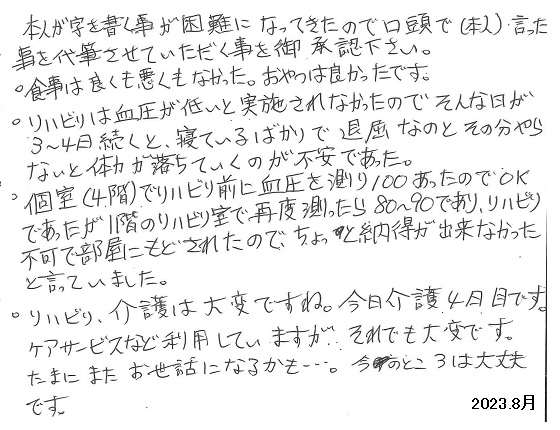 本人が字を書く事が困難になってきたので口頭で(本人)言った
事を代筆させていただく事を御承認下さい。
○食事は良くも悪くもなかった。おやつは良かったです。
○リハビリは血圧が低いと実施されなかったのでそんな日が
3〜4日続くと、寝ているばかりで退屈なのとその分やら
ないと体力が落ちていくのが不安であった。
○個室(4階)でリハビリ前に血圧を測り100あったのでOK
であったが11階のリハビリ室で再度測ったら80〜90であり、リハビリ
不可で部屋にもどされたので、ちょっと納得が出来なかった
と言っていました。
○リハビリ、介護は大変ですね。今日介護4月目です。
ケアサービスなど利用していますが、それでも大変です。
たまにまたお世話になるかも…。今のところは大丈夫
です。
2023.8月